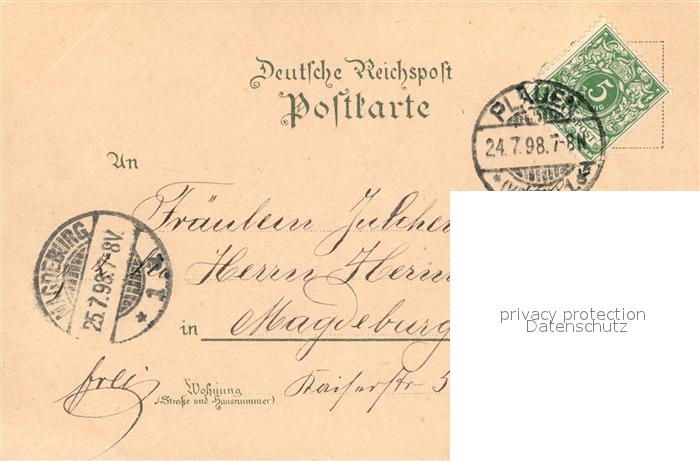 Deutsche Reichspost
Postkarte
5
PLAUEN
24.7.98.7-8N.
An
Fräulein Julchen
bei Herrn Herm
in Magdeburg
Kaiserstr 5
frei
Wohnung
(Straße und Hausnummer)
MAGDEBURG
25.7.98.7-8V.
* 1
privacy protection
Datenschutz